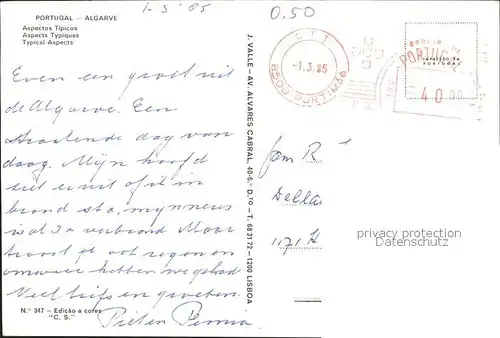 1-3-85
0.50
PORTUGAL - ALGARVE
Aspectos Típicos
Aspects Typiques
Typical Aspects
Even een groet uit
de Algarve. Een
stralende dag van
daag. Mijn hoofd
ziet eruit of it in
brand sta, mijn neus
is al 3x verbrand. Maar
troost je ook regen en
onweer hebben we gehad
Veel liefs en groeten.
Piet en Pennia
N.º 347 - Edição a cores
"C. S."
J. VALLE - AV. ALVARES CABRAL, 40-5.º D.TO - T. 683172 - 1200 LISBOA
CTT
-1.3.85
8500 PORTIMÃO
PORTUGAL
IMPRESSO EM
PORTUGAL
40.00
Fam R
Dellas
1171 H
privacy protection
Datenschutz